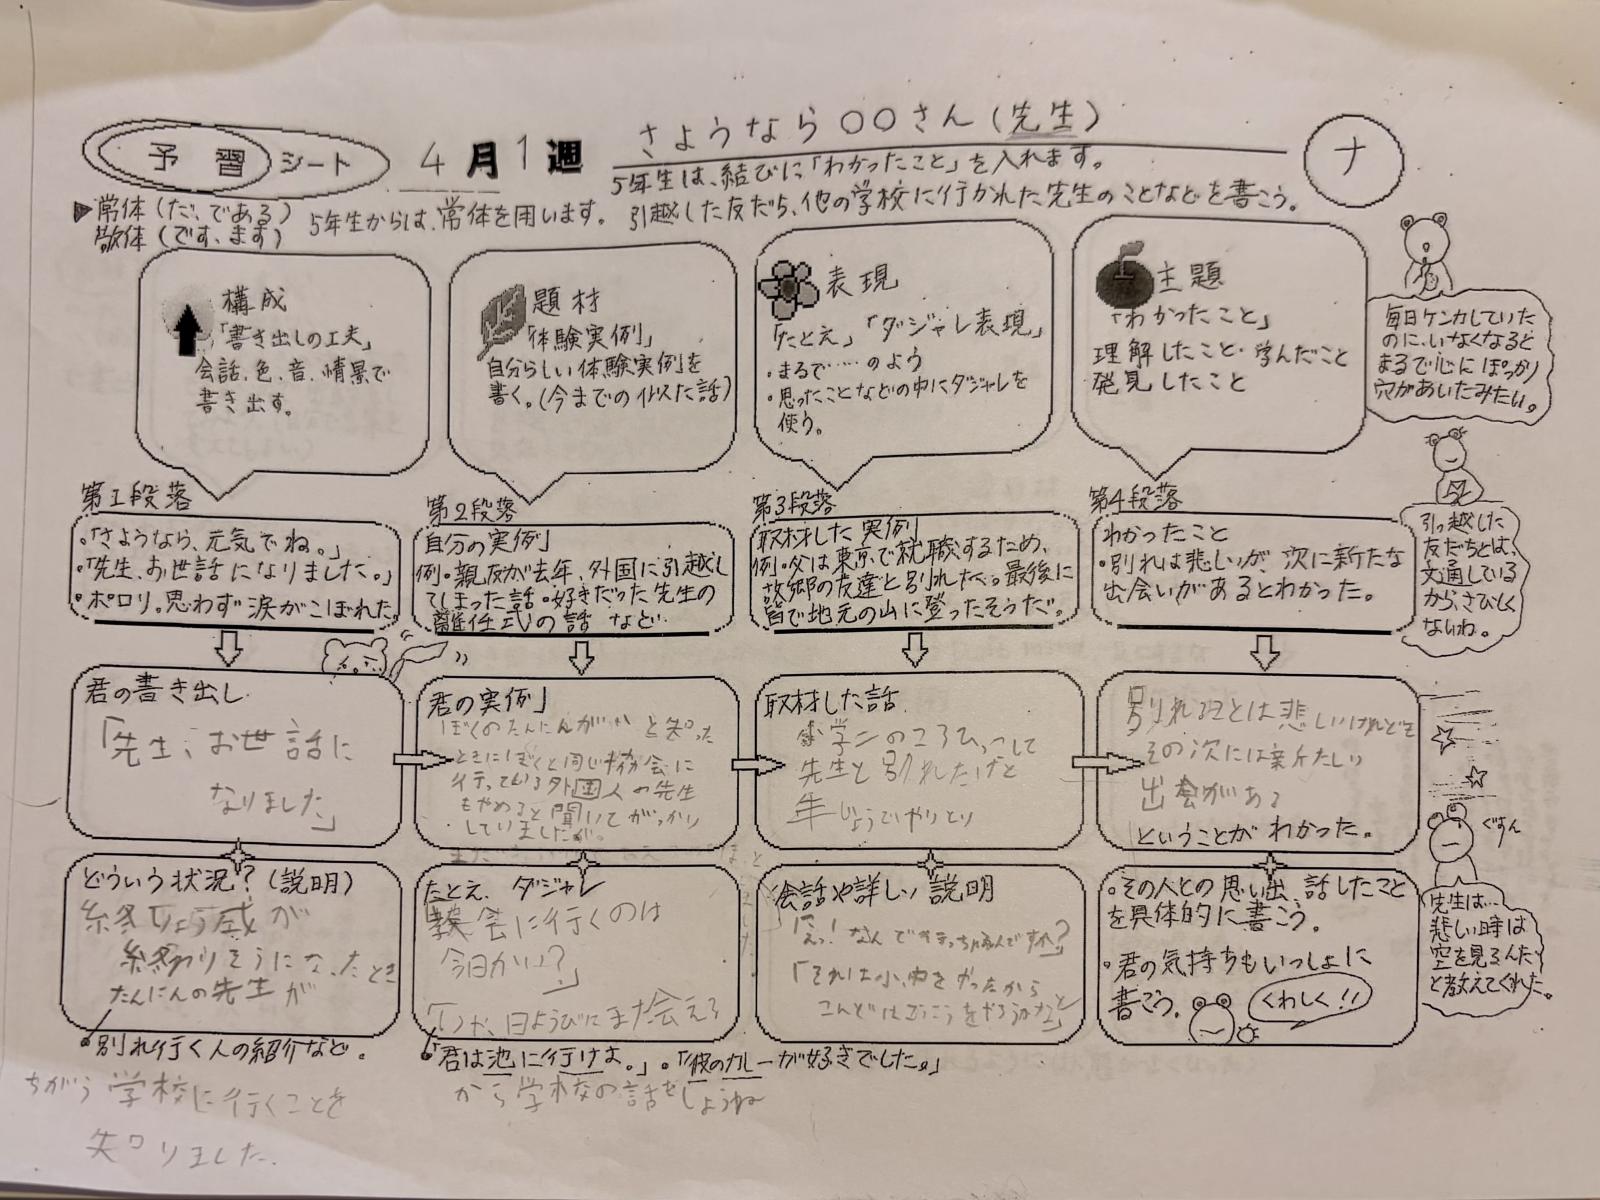 予習シート
4月1週
さようなら○○さん(先生)
5年生は、結びに「わかったこと」を入れます。
ナ
▶常体(だ、である)
敬体(です、ます)
5年生からは、常体を用います。引越した友だち、他の学校に行かれた先生のことなどを書こう。
構成
「書き出しの工夫」
会話、色、音、情景で
書き出す。
題材
「体験実例」
自分らしい体験実例を
書く。(今までの似た話)
表現
「たとえ」「ダジャレ表現」
・まるで……のよう
・思ったことなどの中にダジャレを
使う。
主題
「わかったこと」
理解したこと・学んだこと
発見したこと
毎日ケンカしていた
のに、いなくなると
まるで心にぽっかり
穴があいたみたい。
第1段落
・「さようなら、元気でね。」
・「先生、お世話になりました。」
・ポロリ。思わず涙がこぼれた
第2段落
「自分の実例」
例・親友が去年、外国に引越し
てしまった話・好きだった先生の
離任式の話 など…
第3段落
「取材した実例」
例・父は東京で就職するため、
故郷の友達と別れた。最後に
皆で地元の山に登ったそうだ。
第4段落
わかったこと
・別れは悲しいが、次に新たな
出会いがあるとわかった。
引っ越した
友だちとは、
文通している
から、さびしく
ないね。
君の書き出し
「先生、お世話に
なりました」
君の実例」
ぼくのたんにんが と知った
ときにぼくと同じ教会に
行っている外国人の先生
もやめると聞いてがっかり
していましたが。
取材した話
小学二のころひっこして
先生と別れたけど
年じょうでやりとり
別れることは悲しいけれども
その次には新たしい
出会がある
ということがわかった。
ぐすん
どういう状況?(説明)
終りょう感が
終わりそうになったとき
たんにんの先生が
・別れ行く人の紹介など。
ちがう学校に行くことを
知りました。
たとえ ダジャレ
教会に行くのは
今日かい?」
日ようびにまた会える
・「君は池に行けよ。」・「彼のカレーが好きでした。」
から学校の話をしようね
会話や詳しい説明
「えっ!なんで
「それは
・その人との思い出、話したこと
を具体的に書こう。
・君の気持ちもいっしょに
書こう。
くわしく!!
先生は…
悲しい時は
空を見るんだ、
と教えてくれた。